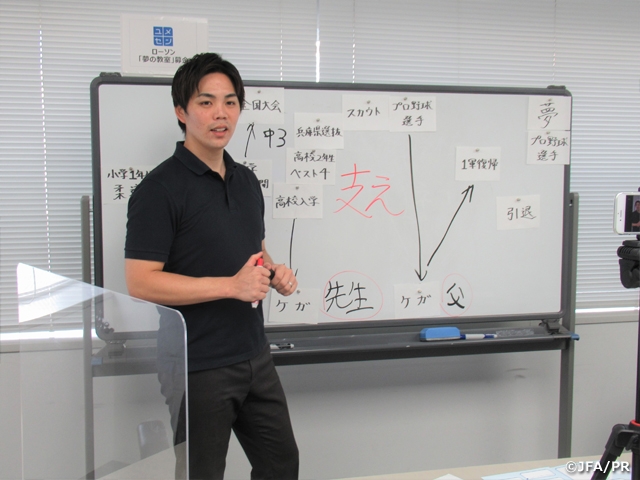 ユメ
セン
ローソン
「夢の教室」募金
全国大会
中3
兵庫県選抜
スカウト
プロ野球
選手
夢
プロ野球
選手
高校2年生
ベスト4
1軍復帰
小学1年
柔
高校入学
支え
引退
ケガ
先生
ケガ
父
©JFA/PR